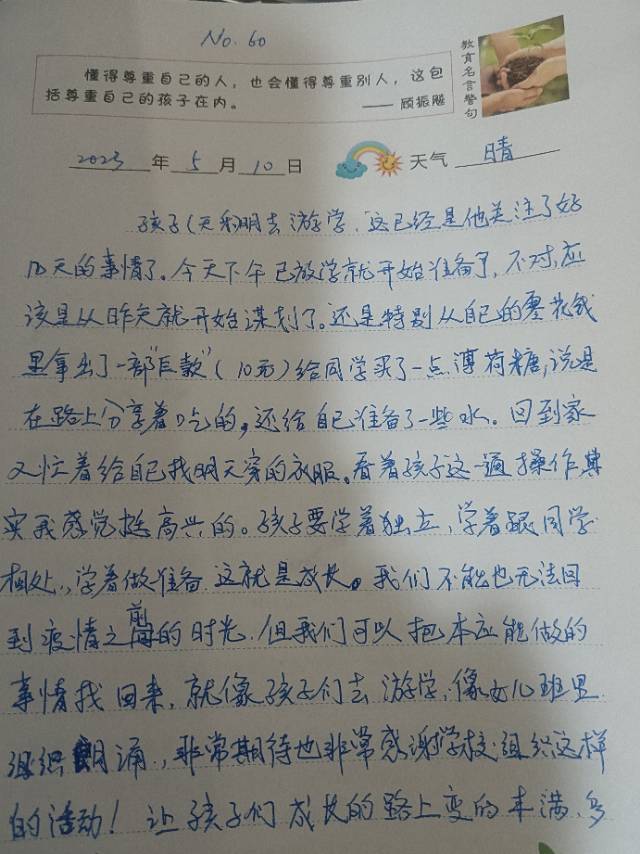 No. 60
教育名言警句
懂得尊重自己的人，也会懂得尊重别人，这包
括尊重自己的孩子在内。 —— 顾振飚
2023 年 5 月 10 日 天气 晴
孩子(天和)明去游学，这已经是他关注了好
几天的事情了。今天下午已放学就开始准备了，不对，应
该是从昨天就开始谋划了。还是特别从自己的零花钱
里拿出了一部"巨款"(10元)给同学买了一点薄荷糖，说是
在路上分享着吃的，还给自己准备了一些水。回到家
又忙着给自己找明天穿的衣服。看着孩子这一通操作其
实我感觉挺高兴的。孩子要学着独立，学着跟同学
相处，学着做准备，这就是成长。我们不能也无法回
到疫情之前的时光，但我们可以把本应能做的
事情找回来，就像孩子们去游学，像女儿班里
组织朗诵，非常期待也非常感谢学校组织这样
的活动！让孩子们成长的路上变的丰满，多